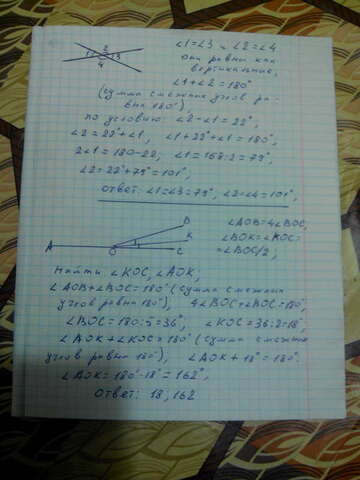 1 2 3
4
∠1=∠3 и ∠2=∠4
они равны как
вертикальные,
∠1+∠2=180°
(сумма смежных углов рав-
вна 180°),
по условию ∠2-∠1=22°,
∠2=22°+∠1, ∠1+22°+∠1=180°,
2∠1=180-22; ∠1=158:2=79°,
∠2=22°+79°=101°,
ответ: ∠1=∠3=79°, ∠2=∠4=101°,
A O B K C
∠AOB=4∠BOC,
∠BOK=∠KOC=
=∠BOC/2,
Найти ∠KOC, ∠AOK,
∠AOB+∠BOC=180° (сумма смежных
углов равна 180°), 4∠BOC+∠BOC=180°,
∠BOC=180:5=36°, ∠KOC=36:2=18°,
∠AOK+∠KOC=180° (сумма смежных
углов равна 180°), ∠AOK+18°=180°
∠AOK=180°-18°=162°,
Ответ: 18, 162